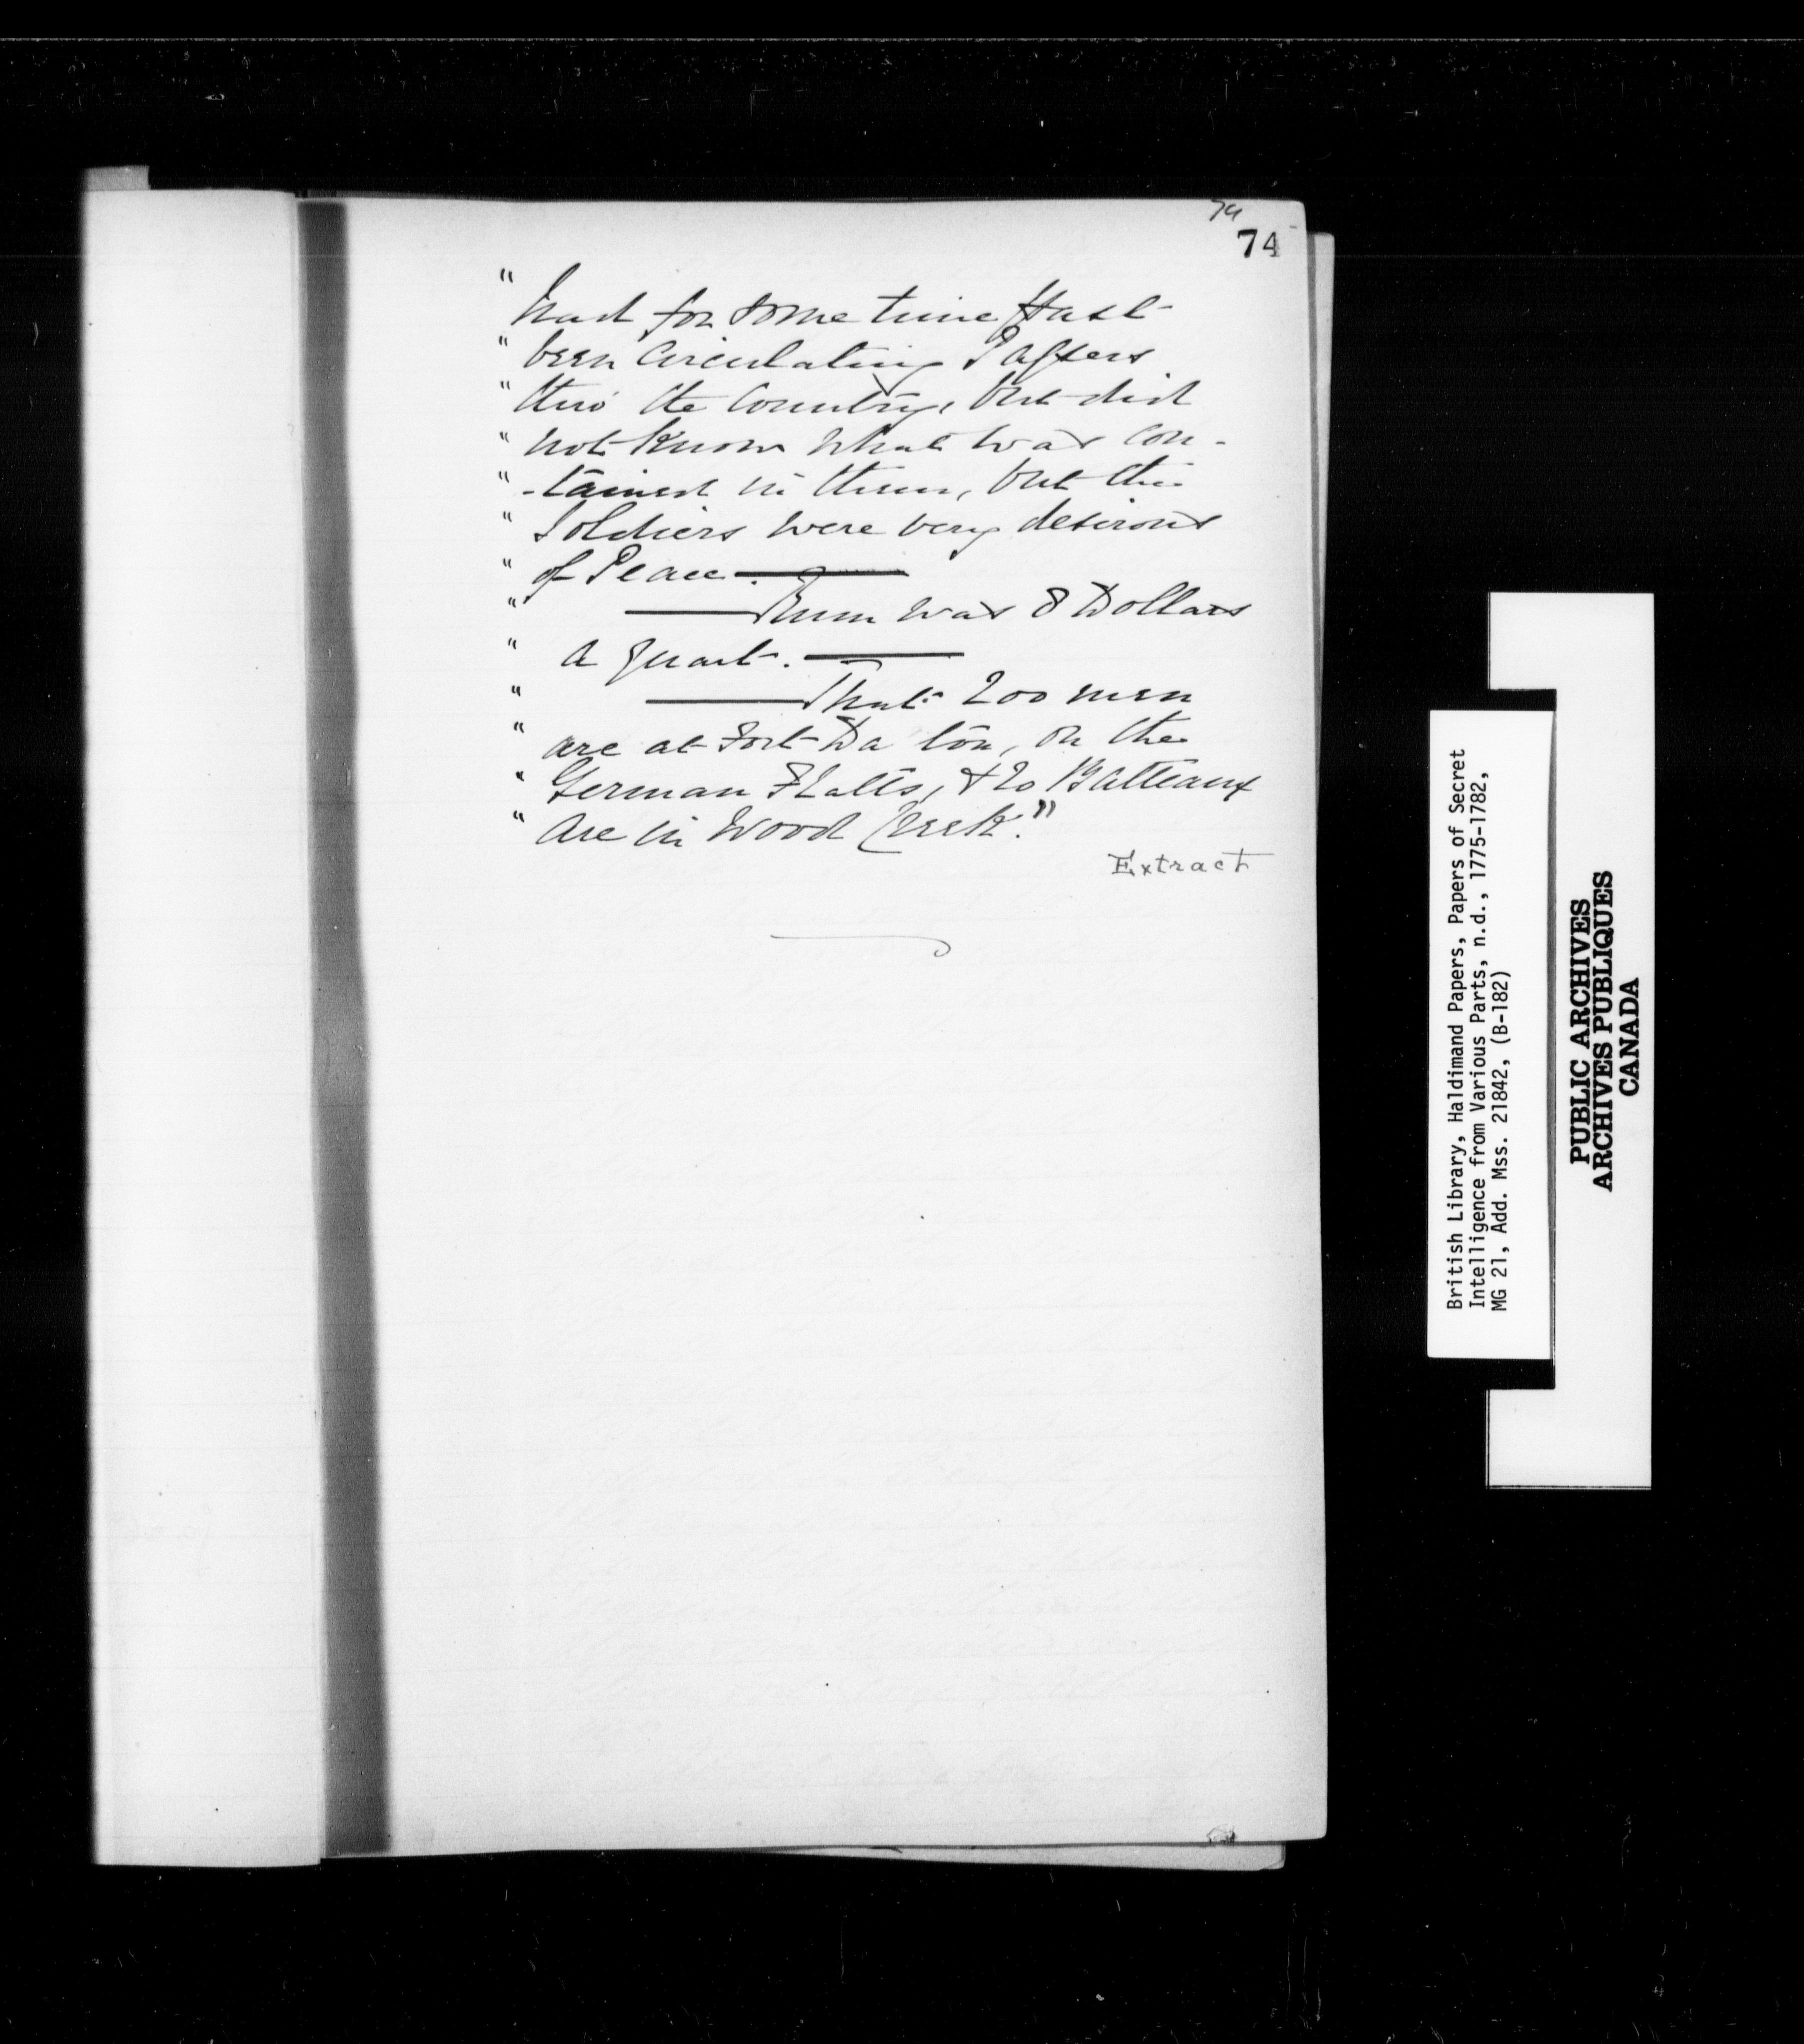 74
74
" had for some time past
" been circulating Papers
" thro' the Country, but did
" not know what was con-
" -tained in them, but the
" Soldiers were very desirous
" of Peace. ———
" ——— Rum was 8 Dollars
" a Quart. ———
" ——— That 200 men
" are at Fort Da ton, on the
" German Flatts, & 20 Batteaux
" are in Wood Creek."
Extract
British Library, Haldimand Papers, Papers of Secret
Intelligence from Various Parts, n.d., 1775-1782,
MG 21, Add. Mss. 21842, (B-182)
PUBLIC ARCHIVES
ARCHIVES PUBLIQUES
CANADA